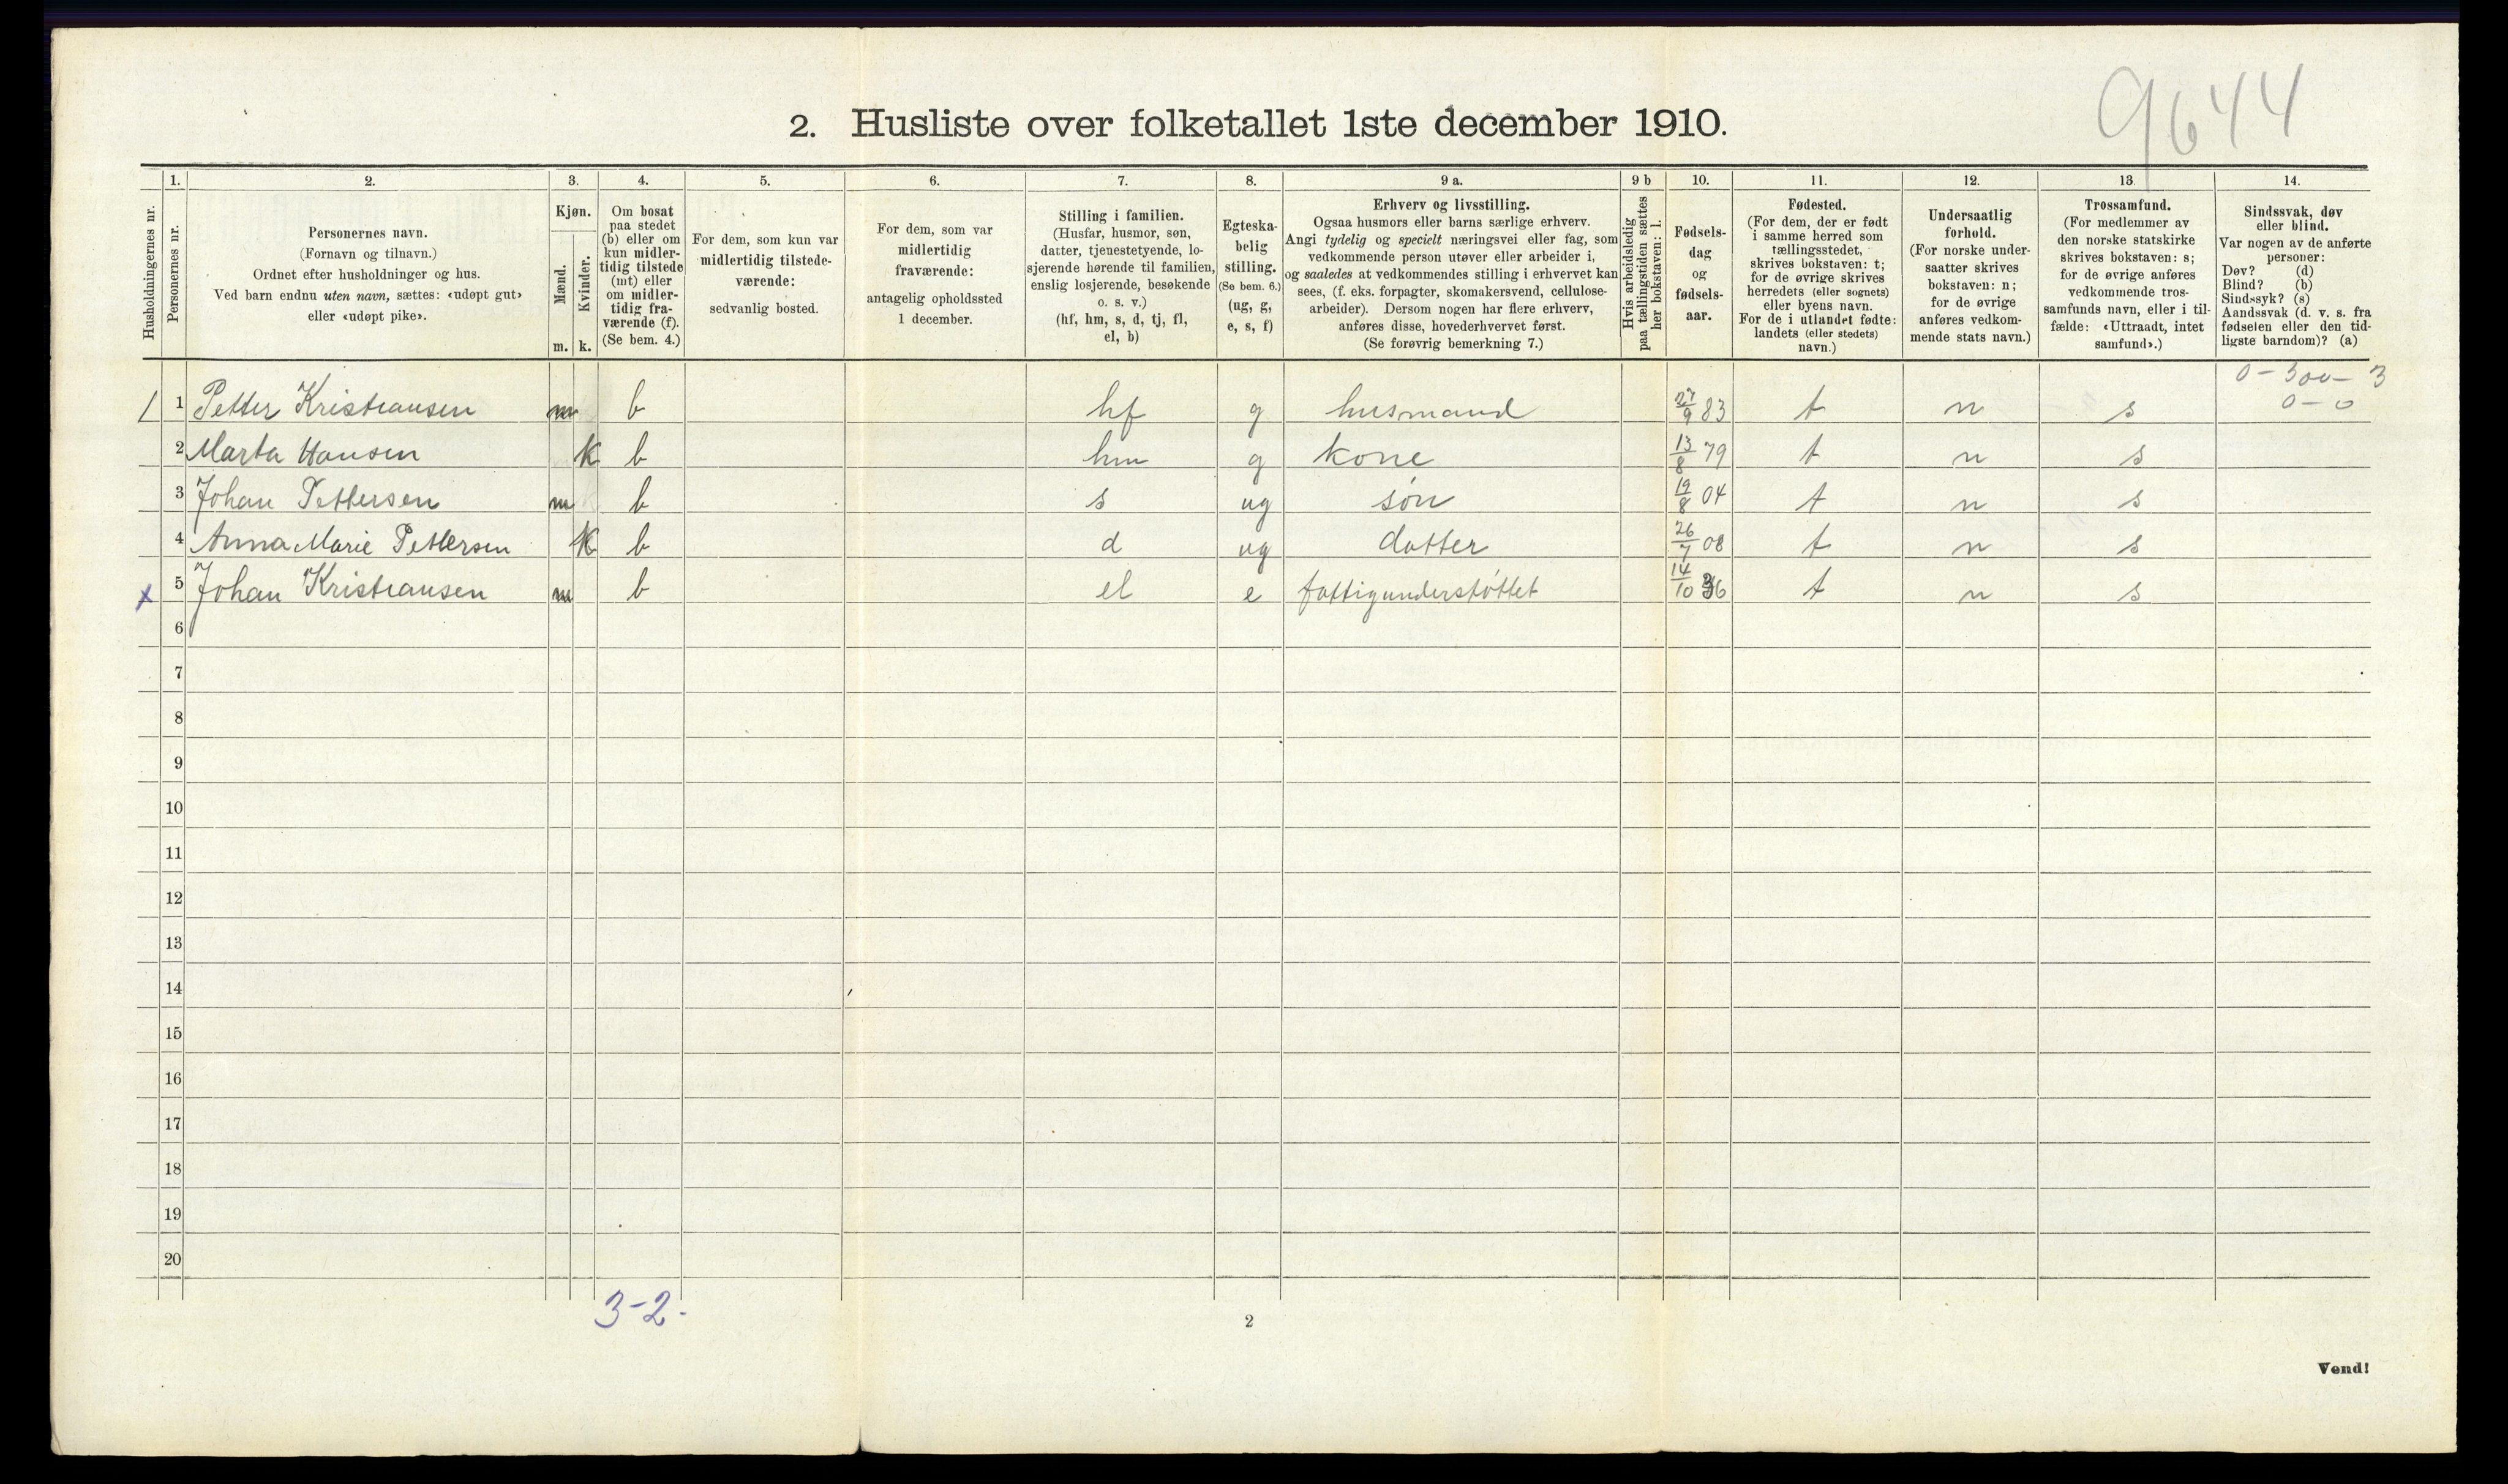 9644
2. Husliste over folketallet 1ste december 1910.
Husholdningernes nr.
1.
Personernes nr.
2.
Personernes navn.
(Fornavn og tilnavn.)
Ordnet efter husholdninger og hus.
Ved barn endnu uten navn, sættes: «udøpt gut»
eller «udøpt pike».
3.
Kjøn.
Mænd.
Kvinder.
m. k.
4.
Om bosat
paa stedet
(b) eller om
kun midler-
tidig tilstede
(mt) eller
om midler-
tidig fra-
værende (f).
(Se bem. 4.)
5.
For dem, som kun var
midlertidig tilstede-
værende:
sedvanlig bosted.
6.
For dem, som var
midlertidig
fraværende:
antagelig opholdssted
1 december.
7.
Stilling i familien.
(Husfar, husmor, søn,
datter, tjenestetyende, lo-
sjerende hørende til familien,
enslig losjerende, besøkende
o. s. v.)
(hf, hm, s, d, tj, fl,
el, b)
8.
Egteska-
belig
stilling.
(Se bem. 6.)
(ug, g,
e, s, f)
9 a.
Erhverv og livsstilling.
Ogsaa husmors eller barns særlige erhverv.
Angi tydelig og specielt næringsvei eller fag, som
vedkommende person utøver eller arbeider i,
og saaledes at vedkommendes stilling i erhvervet kan
sees, (f. eks. forpagter, skomakersvend, cellulose-
arbeider). Dersom nogen har flere erhverv,
anføres disse, hovederhvervet først.
(Se forøvrig bemerkning 7.)
9 b
Hvis arbeidsledig
paa tællingstiden sættes
her bokstaven: l.
10.
Fødsels-
dag
og
fødsels-
aar.
11.
Fødested.
(For dem, der er født
i samme herred som
tællingsstedet,
skrives bokstaven: t;
for de øvrige skrives
herredets (eller sognets)
eller byens navn.
For de i utlandet fødte:
landets (eller stedets)
navn.)
12.
Undersaatlig
forhold.
(For norske under-
saatter skrives
bokstaven: n;
for de øvrige
anføres vedkom-
mende stats navn.)
13.
Trossamfund.
(For medlemmer av
den norske statskirke
skrives bokstaven: s;
for de øvrige anføres
vedkommende tros-
samfunds navn, eller i til-
fælde: «Uttraadt, intet
samfund».)
14.
Sindssvak, døv
eller blind.
Var nogen av de anførte
personer:
Døv? (d)
Blind? (b)
Sindssyk? (s)
Aandssvak (d. v. s. fra
fødselen eller den tid-
ligste barndom)? (a)
0-300-3
0-0
1 Petter Kristiansen m b hf g husmand 27/9 83 t n s
2 Marta Hansen k b hm g kone 13/8 79 t n s
3 Johan Pettersen m b s ug søn 19/8 04 t n s
4 Anna Marie Pettersen k b d ug datter 26/7 08 t n s
x 5 Johan Kristiansen m b el e fattigunderstøttet 14/10 36 t n s
6
7
8
9
10
11
12
13
14
15
16
17
18
19
20
3-2-
2
Vend!